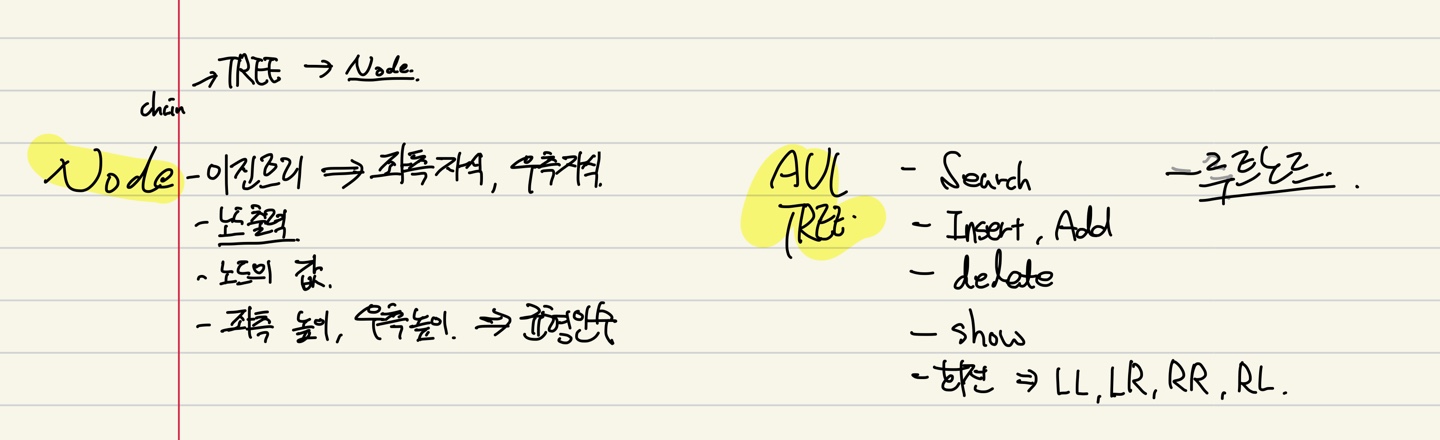 → TREE → Node.
chain
Node - 이진트리 ⇒ 좌측자식, 우측자식.
- 노드출력
- 노드의 값.
- 좌측 높이, 우측높이. ⇒ 균형인수
AVL TREE.
- Search
- Insert, Add
- delete
- show
- 회전 ⇒ LL, LR, RR, RL.
- 루트노드.